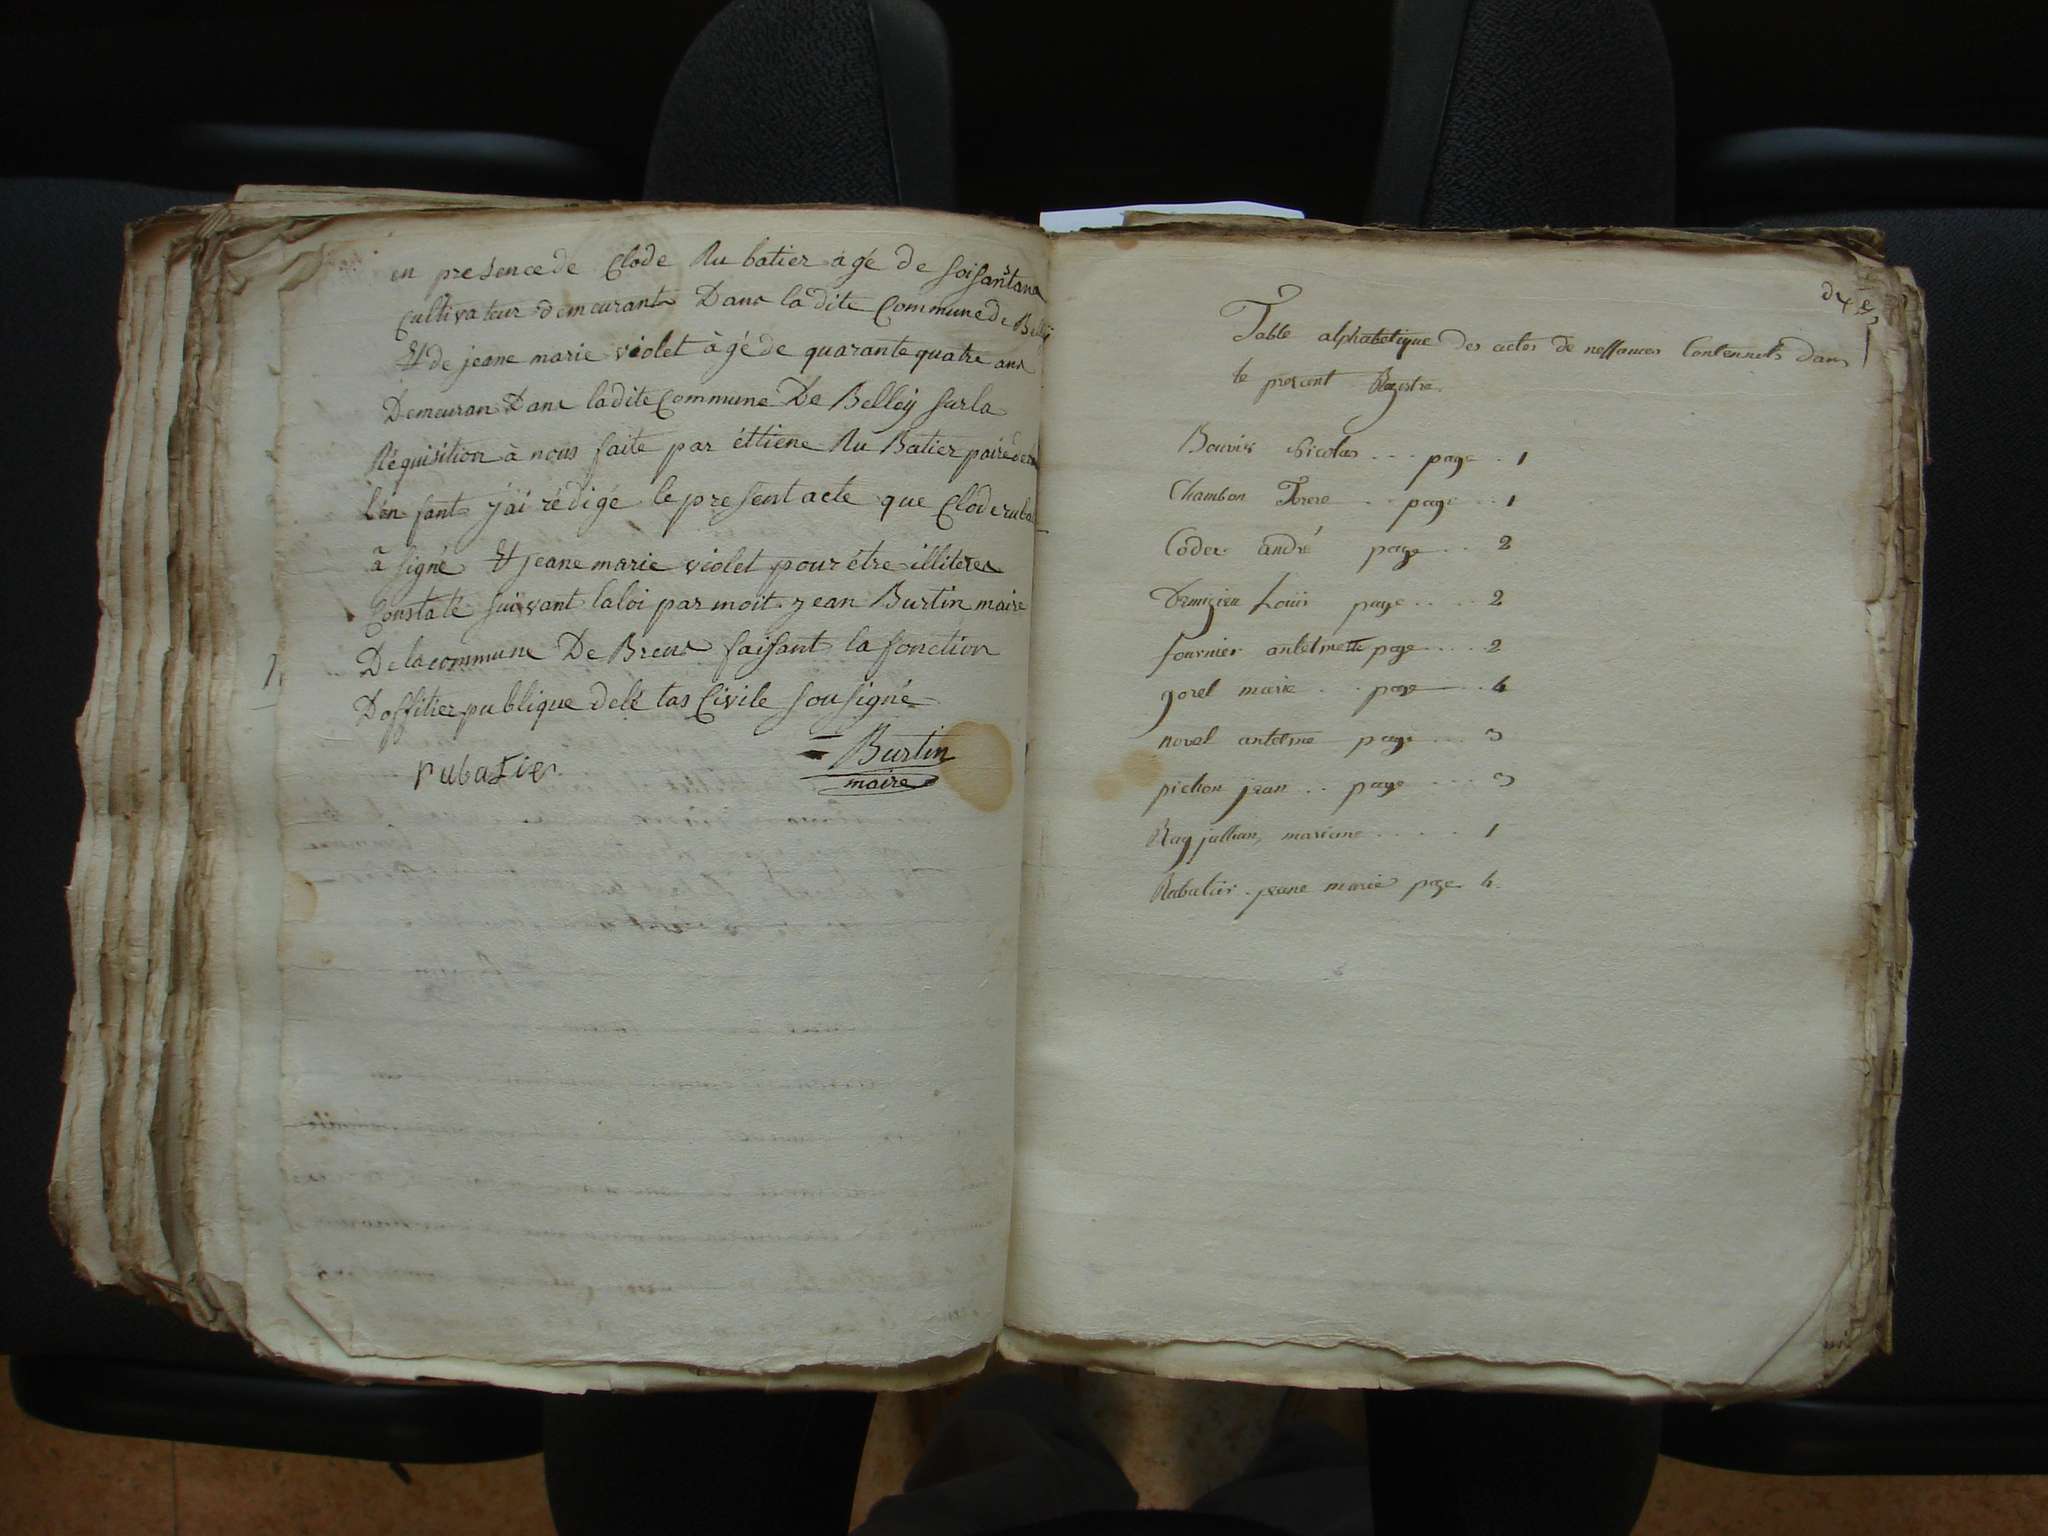 en presence de Clode Rubatier âgé de soisantans
Cultivateur demeurant Dans ladite Commune de Belleÿ
Et de jeane marie violet âgé de quarante quatre ans
Demeuran Dans ladite Commune De Belleÿ sur la
Réquisition à nous faite par éttiene Ru Batier paire de
l'én fant j'ài rédigé le present acte que Clode ruba
à signé Et jeane marie violet pour étre illiteres
Constaté suivant la loi par moit jean Burtin maire
De la commune De Brens faisant la fonction
D'offitier publique de lé tas Civile sousigné
rubatier Burtin
maire
Table alphabetique des actes de nessances Contennuts dans
le present Regestre
Bouvier Nicolas ... page . 1
Chambon . . page . . 1
Coder andré page . . 2
Louis page ..... 2
fournier antelmette page ..... 2
gorel marie . . page . . 4
novel antelme page ... 3
pichon jean .. page .... 3
mariane ...... 1
Rubatier jeane marie page 4.